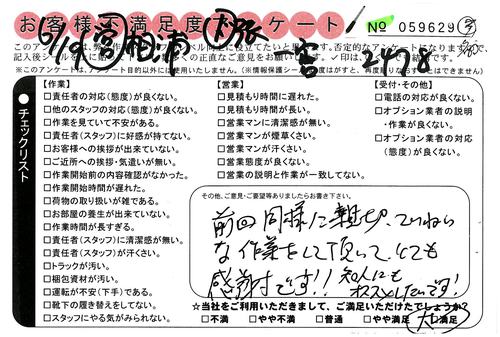 お客様不満足度アンケート! No 059629
記入後シール
※このアンケートは、アンケート目的以外には使用いたしません。
チェックリスト
【作業】
□責任者の対応(態度)が良くない。
□他のスタッフの対応(態度)が良くない。
□作業を見ていて不安がある。
□責任者(スタッフ)に好感が持てない。
□お客様への挨拶が出来ていない。
□ご近所への挨拶・気遣いが無い。
□作業開始前の内容確認がなかった。
□作業開始時間が遅れた。
□荷物の取り扱いが雑である。
□お部屋の養生が出来ていない。
□作業時間が長すぎる。
□責任者(スタッフ)に清潔感が無い。
□責任者(スタッフ)が汗くさい。
□トラックが汚い。
□梱包資材が汚い。
□運転が不安(下手)である。
□靴下の履き替えをしてない。
□スタッフにやる気がみられない。
【営業】
□見積もり時間に遅れた。
□見積もり時間が長い。
□営業マンに清潔感が無い。
□営業マンが煙草くさい。
□営業マンが汗くさい。
□営業態度が良くない。
□営業の説明と作業が一致してない。
【受付・その他】
□電話の対応が良くない。
□オプション業者の説明
・作業が良くない。
□オプション業者の対応
(態度)が良くない。
その他、ご意見・ご要望等ありましたらお書き下さい。
前回同様に親切、ていねい
な作業をして頂いて、とても
感謝です!! 知人にも
オススメしたいです!
☆当社をご利用いただきまして、ご満足いただけたでしょうか?
□不満 □やや不満 □普通 □やや満足 大満足